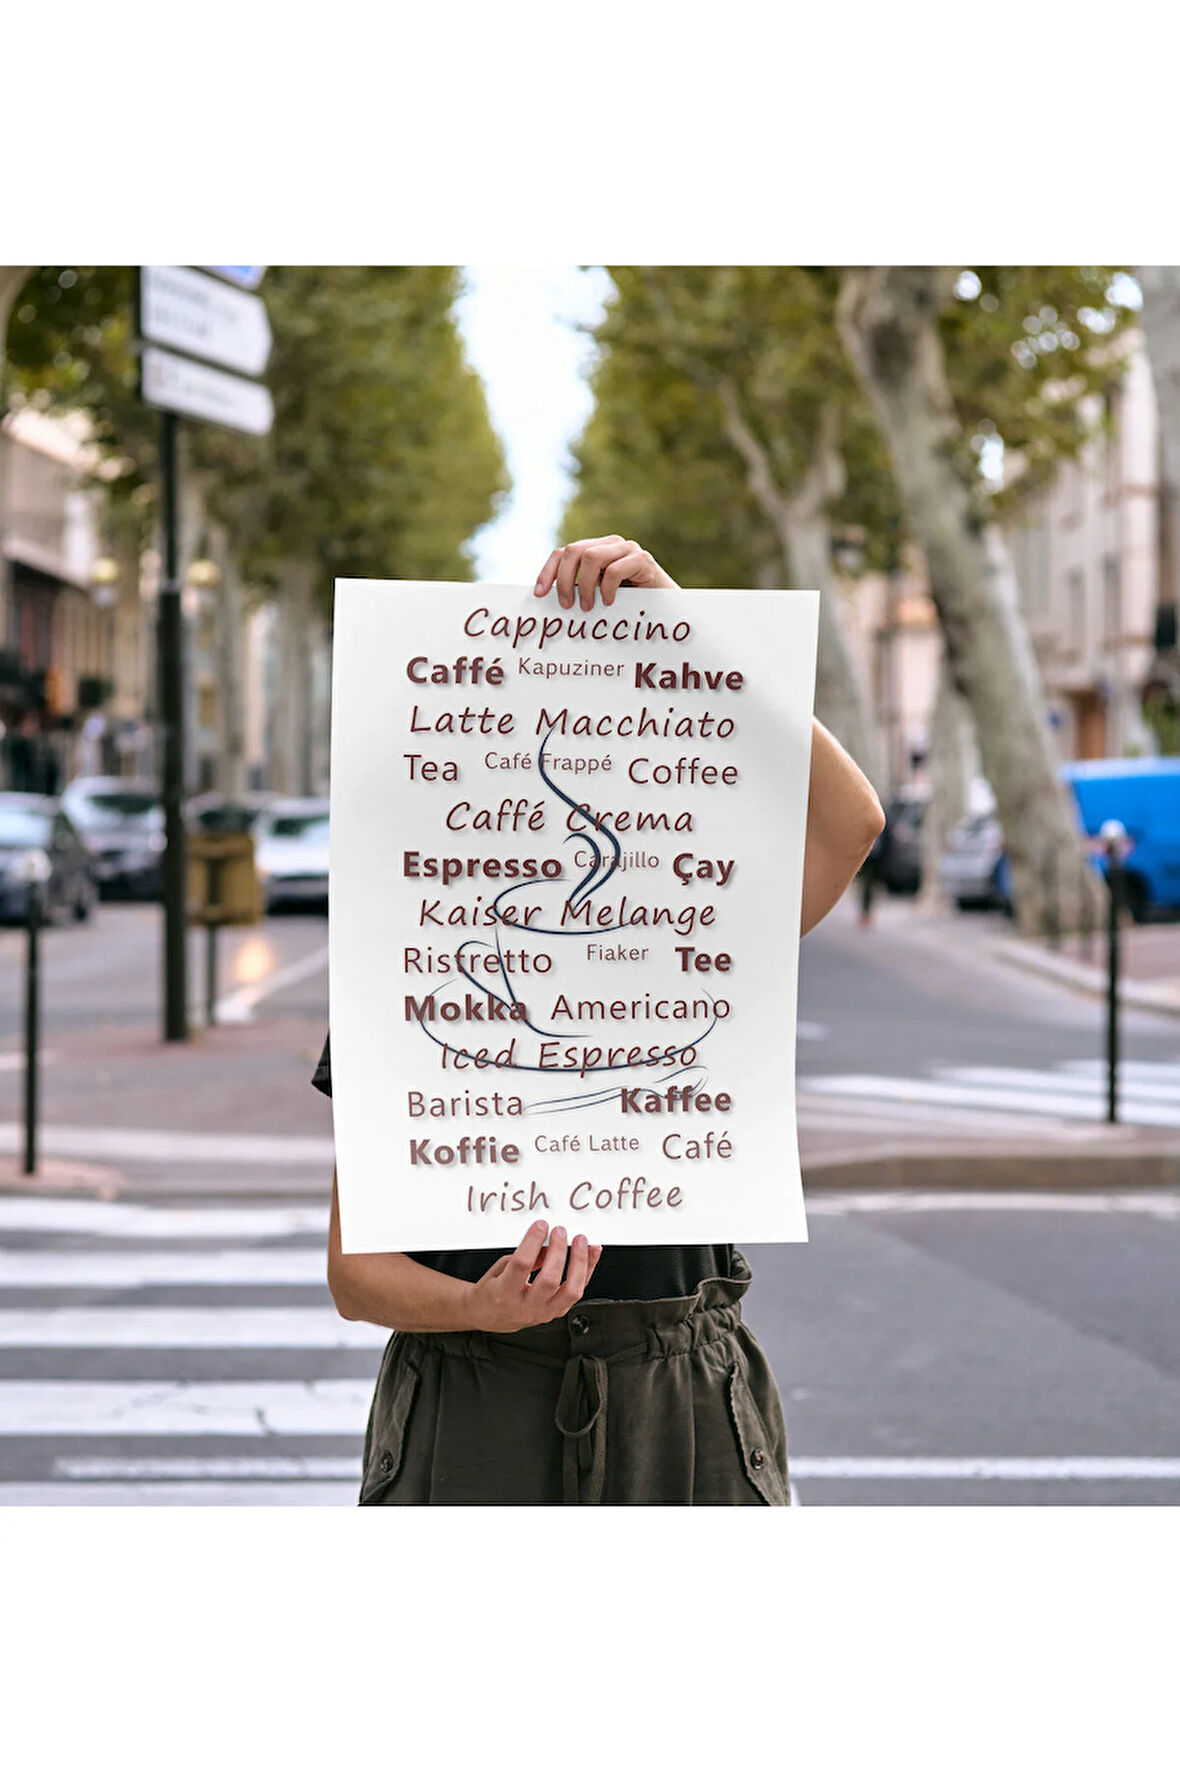 Cappuccino
Caffé Kapuziner Kahve
Latte Macchiato
Tea Café Frappé Coffee
Caffé Crema
Espresso Carajillo Çay
Kaiser Melange
Ristretto Fiaker Tee
Mokka Americano
Iced Espresso
Barista Kaffee
Koffie Café Latte Café
Irish Coffee